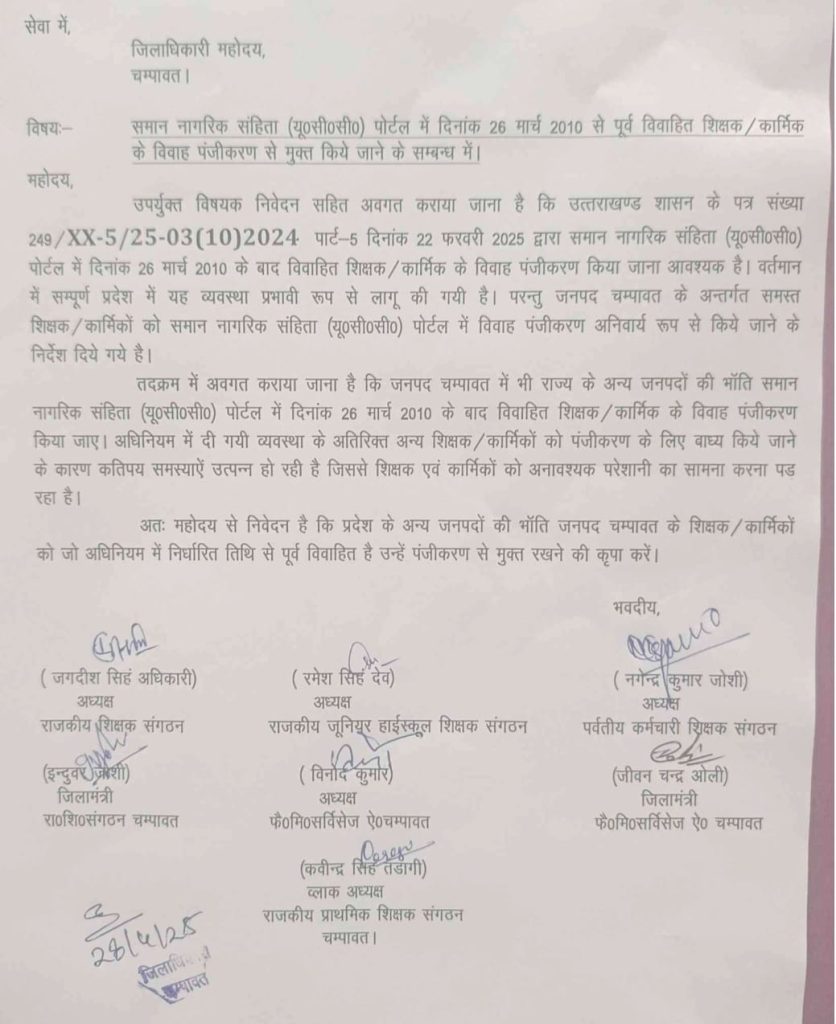 सेवा में,
जिलाधिकारी महोदय,
चम्पावत।
विषयः– समान नागरिक संहिता (यू0सी0सी0) पोर्टल में दिनांक 26 मार्च 2010 से पूर्व विवाहित शिक्षक/कार्मिक
के विवाह पंजीकरण से मुक्त किये जाने के सम्बन्ध में।
महोदय,
उपर्युक्त विषयक निवेदन सहित अवगत कराया जाना है कि उत्तराखण्ड शासन के पत्र संख्या
249/XX-5/25-03(10)2024 पार्ट–5 दिनांक 22 फरवरी 2025 द्वारा समान नागरिक संहिता (यू0सी0सी0)
पोर्टल में दिनांक 26 मार्च 2010 के बाद विवाहित शिक्षक/कार्मिक के विवाह पंजीकरण किया जाना आवश्यक है। वर्तमान
में सम्पूर्ण प्रदेश में यह व्यवस्था प्रभावी रूप से लागू की गयी है। परन्तु जनपद चम्पावत के अन्तर्गत समस्त
शिक्षक/कार्मिकों को समान नागरिक संहिता (यू0सी0सी0) पोर्टल में विवाह पंजीकरण अनिवार्य रूप से किये जाने के
निर्देश दिये गये है।
तदक्रम में अवगत कराया जाना है कि जनपद चम्पावत में भी राज्य के अन्य जनपदों की भॉति समान
नागरिक संहिता (यू0सी0सी0) पोर्टल में दिनांक 26 मार्च 2010 के बाद विवाहित शिक्षक/कार्मिक के विवाह पंजीकरण
किया जाए। अधिनियम में दी गयी व्यवस्था के अतिरिक्त अन्य शिक्षक/कार्मिकों को पंजीकरण के लिए बाध्य किये जाने
के कारण कतिपय समस्याऐं उत्पन्न हो रही है जिससे शिक्षक एवं कार्मिकों को अनावश्यक परेशानी का सामना करना पड
रहा है।
अतः महोदय से निवेदन है कि प्रदेश के अन्य जनपदों की भॉति जनपद चम्पावत के शिक्षक/कार्मिकों
को जो अधिनियम में निर्धारित तिथि से पूर्व विवाहित है उन्हें पंजीकरण से मुक्त रखने की कृपा करें।
भवदीय,
( जगदीश सिहं अधिकारी) ( रमेश सिहं देव) ( नगेन्द्र कुमार जोशी)
अध्यक्ष अध्यक्ष अध्यक्ष
राजकीय शिक्षक संगठन राजकीय जूनियर हाईस्कूल शिक्षक संगठन पर्वतीय कर्मचारी शिक्षक संगठन
(इन्दुवर जोशी) ( विनोद कुमार) (जीवन चन्द्र ओली)
जिलामंत्री अध्यक्ष जिलामंत्री
रा0शि0संगठन चम्पावत फै0मि0सर्विसेज ऐ0चम्पावत फै0मि0सर्विसेज ऐ0 चम्पावत
(कवीन्द्र सिहं तडागी)
व्लाक अध्यक्ष
राजकीय प्राथमिक शिक्षक संगठन
चम्पावत।
28/4/25
चम्पावत